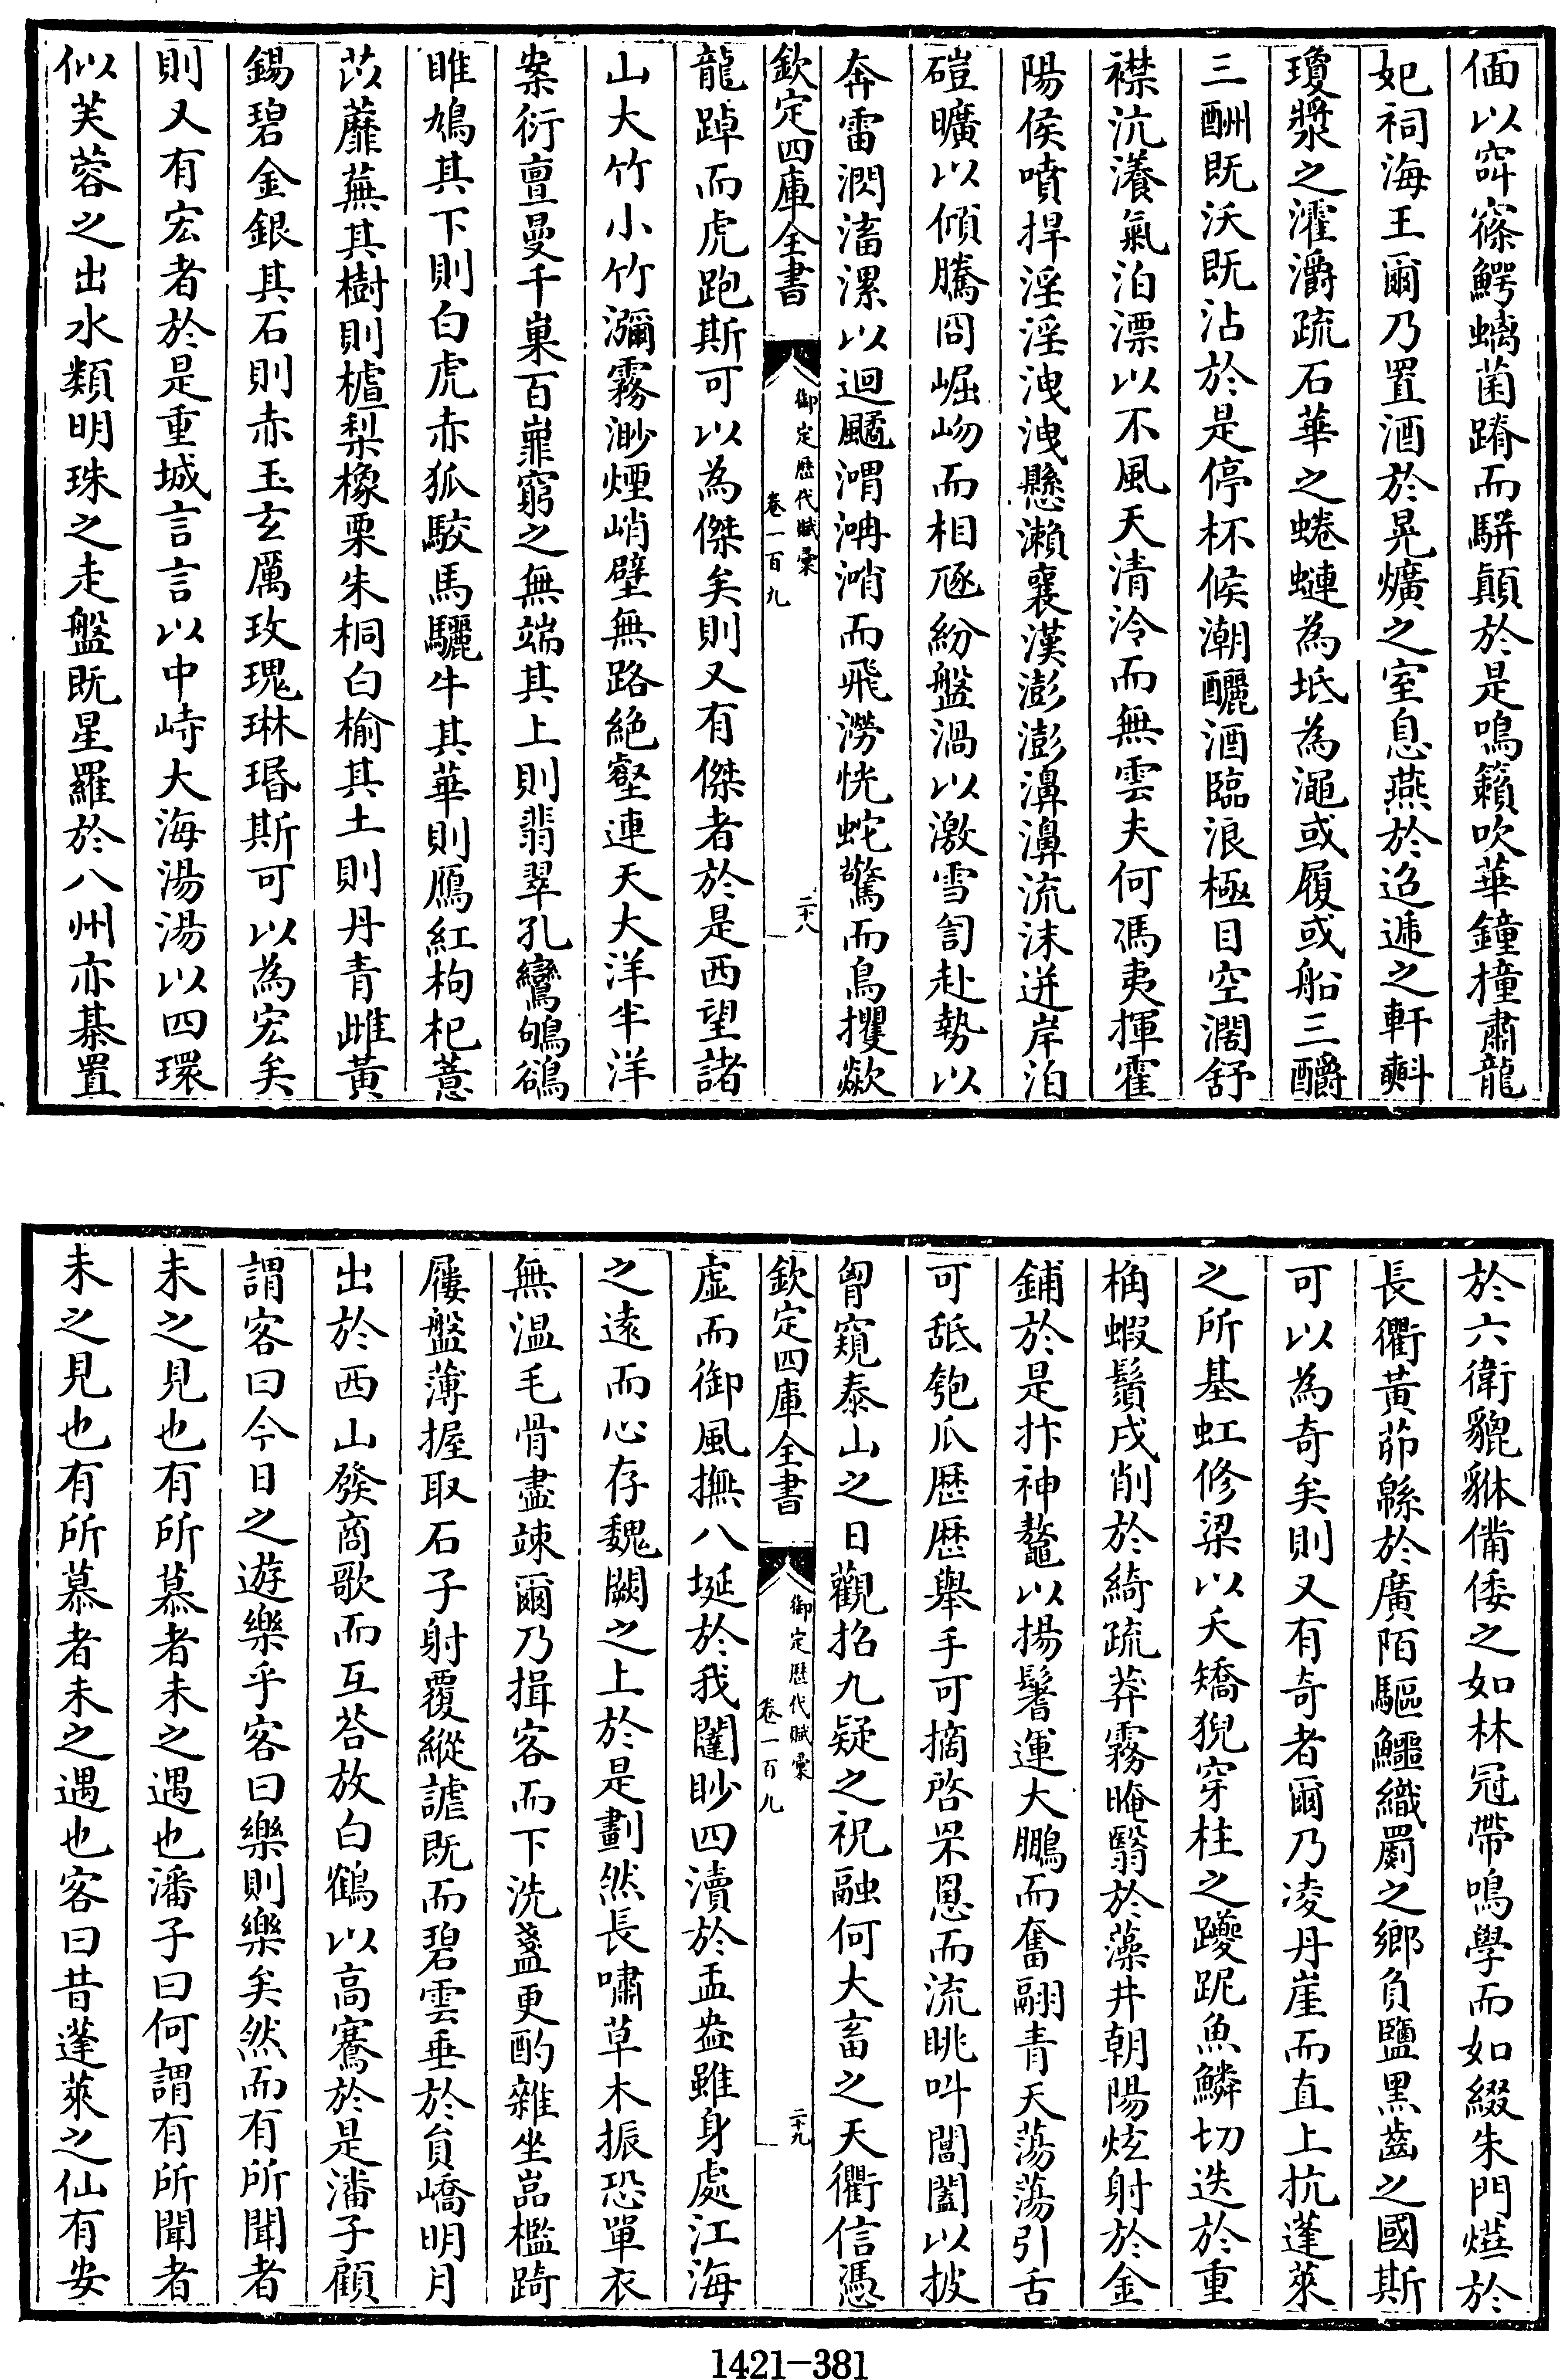 偭以窅窱鰐螭菌蹐而駢顛於是鳴籟吹華鐘撞肅龍
妃祠海王爾乃置酒於晃爌之室息燕於迢遞之軒㪺
瓊漿之濯灂疏石華之蜷蜷為坻為澠或履或船三釂
三酬既沃既沾於是停杯候潮釃酒臨浪極目空濶舒
襟沆瀁氣泊漂以不風天清泠而無雲夫何馮夷揮霍
陽侯噴捍淫淫洩洩懸瀨襄漢澎澎濞濞流沫迸岸泊
磑曠以傾騰冏崛岉而相豗紛盤渦以激雪訇赴勢以
奔雷潤滀漯以迴飈渭渀湝而飛澇恍蛇驚而鳥攫歘
欽定四庫全書
御定歷代賦彙
卷一百九
二十八
龍踔而虎跑斯可以為傑矣則又有傑者於是西望諸
山大竹小竹瀰霧渺煙峭壁無路絕壑連天大洋半洋
案衍亶曼千巢百巃窮之無端其上則翡翠孔鸞鴝鵒
雎鳩其下則白虎赤狐駮馬驪牛其華則鴈紅枸杞薏
苡蘼蕪其樹則樝梨橡栗朱桐白榆其土則丹青雌黃
錫碧金銀其石則赤玉玄厲玫瑰琳瑉斯可以為宏矣
則又有宏者於是重城言言以中峙大海湯湯以四環
似芙蓉之出水類明珠之走盤既星羅於八州亦棊置
於六衛貔貅備倭之如林冠帶鳴學而如綴朱門𤒝於
長衢黃茆緜於廣陌驅鱷織罽之鄉負鹽黑齒之國斯
可以為奇矣則又有奇者爾乃凌丹崖而直上抗蓬萊
之所基虹修梁以夭矯猊穿柱之躨跜魚鱗切迭於重
桷蝦鬚戌削於綺疏莽霧晻翳於藻井朝陽炫射於金
鋪於是抃神鼇以揚鬐運大鵬而奮翮青天蕩蕩引舌
可舐匏瓜歷歷舉手可摘啓罘罳而流眺叫閶闔以披
胷窺泰山之日觀招九疑之祝融何大畜之天衢信憑
欽定四庫全書
御定歷代賦彙
卷一百九
二十九
虛而御風撫八埏於我闥眇四瀆於盂盎雖身處江海
之遠而心存魏闕之上於是劃然長嘯草木振恐單衣
無温毛骨盡竦爾乃揖客而下洗盞更酌雜坐嵓檻踦
屨盤薄握取石子射覆縱謔既而碧雲垂於員嶠明月
出於西山發商歌而互荅放白鶴以高騫於是潘子顧
謂客曰今日之遊樂乎客曰樂則樂矣然而有所聞者
未之見也有所慕者未之遇也潘子曰何謂有所聞者
未之見也有所慕者未之遇也客曰昔蓬萊之仙有安
1421-381